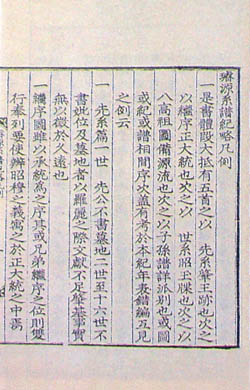 璿源系譜紀略凡例
一是書體段大抵有五首之以 先系肇王跡也次之
以繼序正大統也次之以 世系昭王牒也次之以
八高祖圖備源流也次之以子孫譜詳派別也或圖
或紀或譜相間序次盖有考於本紀年表錯編互見
之例云
一 先系篇一世 先公不書墓地二世至十六世不
書妣位及墓地者以羅麗之際文獻不足肇基事實
無以徵於久遠也
一繼序圖雖以承統為之序其或兄弟繼序之位則雙
行奉列要使辨昭穆之義寓於正大統之中焉